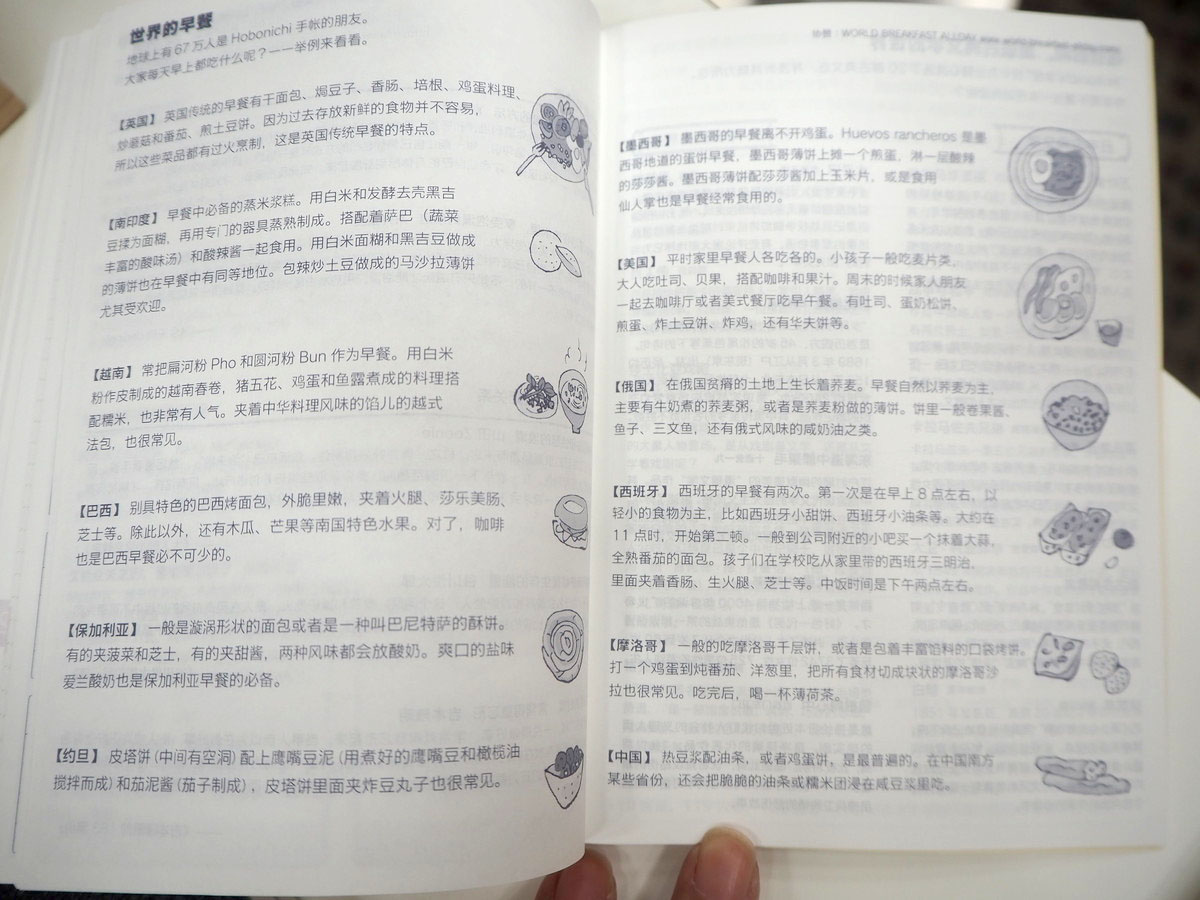 世界的早餐
地球上有 67 万人是 Hobonichi 手帐的朋友。
大家每天早上都吃什么呢？一一举例来看看。
【英国】 英国传统的早餐有干面包、焗豆子、香肠、培根、鸡蛋料理、
炒蘑菇和番茄、煎土豆饼。因为过去存放新鲜的食物并不容易，
所以这些菜品都有过火烹制，这是英国传统早餐的特点。
【南印度】 早餐中必备的蒸米浆糕。用白米和发酵去壳黑吉
豆揉为面糊，再用专门的器具蒸熟制成。搭配着萨巴（蔬菜
丰富的酸味汤）和酸辣酱一起食用。用白米面糊和黑吉豆做成
的薄饼也在早餐中有同等地位。包辣炒土豆做成的马沙拉薄饼
尤其受欢迎。
【越南】 常把扁河粉 Pho 和圆河粉 Bun 作为早餐。用白米
粉作皮制成的越南春卷，猪五花、鸡蛋和鱼露煮成的料理搭
配糯米，也非常有人气。夹着中华料理风味的馅儿的越式
法包，也很常见。
【巴西】 别具特色的巴西烤面包，外脆里嫩，夹着火腿、莎乐美肠、
芝士等。除此以外，还有木瓜、芒果等南国特色水果。对了，咖啡
也是巴西早餐必不可少的。
【保加利亚】 一般是漩涡形状的面包或者是一种叫巴尼特萨的酥饼。
有的夹菠菜和芝士，有的夹甜酱，两种风味都会放酸奶。爽口的盐味
爱兰酸奶也是保加利亚早餐的必备。
【约旦】 皮塔饼（中间有空洞）配上鹰嘴豆泥（用煮好的鹰嘴豆和橄榄油
搅拌而成）和茄泥酱（茄子制成），皮塔饼里面夹炸豆丸子也很常见。
协景：WORLD BREAKFAST ALLDAY
【墨西哥】 墨西哥的早餐离不开鸡蛋。Huevos rancheros 是墨
西哥地道的蛋饼早餐，墨西哥薄饼上摊一个煎蛋，淋一层酸辣
的莎莎酱。墨西哥薄饼配莎莎酱加上玉米片，或是食用
仙人掌也是早餐经常食用的。
【美国】 平时家里早餐人各吃各的。小孩子一般吃麦片类，
大人吃吐司、贝果，搭配咖啡和果汁。周末的时候家人朋友
一起去咖啡厅或者美式餐厅吃早午餐。有吐司、蛋奶松饼，
煎蛋、炸土豆饼、炸鸡，还有华夫饼等。
【俄国】 在俄国贫瘠的土地上生长着荞麦。早餐自然以荞麦为主，
主要有牛奶煮的荞麦粥，或者是荞麦粉做的薄饼。饼里一般卷果酱、
鱼子、三文鱼，还有俄式风味的咸奶油之类。
【西班牙】 西班牙的早餐有两次。第一次是在早上 8 点左右，以
轻小的食物为主，比如西班牙小甜饼、西班牙小油条等。大约在
11 点时，开始第二顿。一般到公司附近的小吧买一个抹着大蒜，
全熟番茄的面包。孩子们在学校吃从家里带的西班牙三明治，
里面夹着香肠、生火腿、芝士等。中饭时间是下午两点左右。
【摩洛哥】 一般的吃摩洛哥千层饼，或者是包着丰富馅料的口袋烤饼。
打一个鸡蛋到炖番茄、洋葱里，把所有食材切成块状的摩洛哥沙
拉也很常见。吃完后，喝一杯薄荷茶。
【中国】 热豆浆配油条，或者鸡蛋饼，是最普遍的。在中国南方
某些省份，还会把脆脆的油条或糯米团浸在咸豆浆里吃。